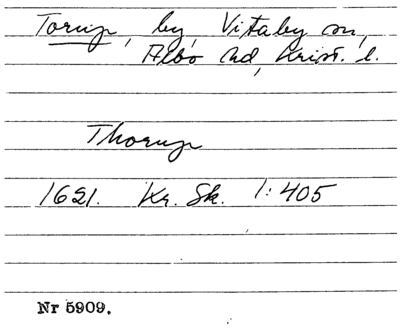 Torup, by, Vitaby sn,
Albo hd, Krist. l.
Thorup
1621. Kr. Sk. 1:405
Nr 5909.